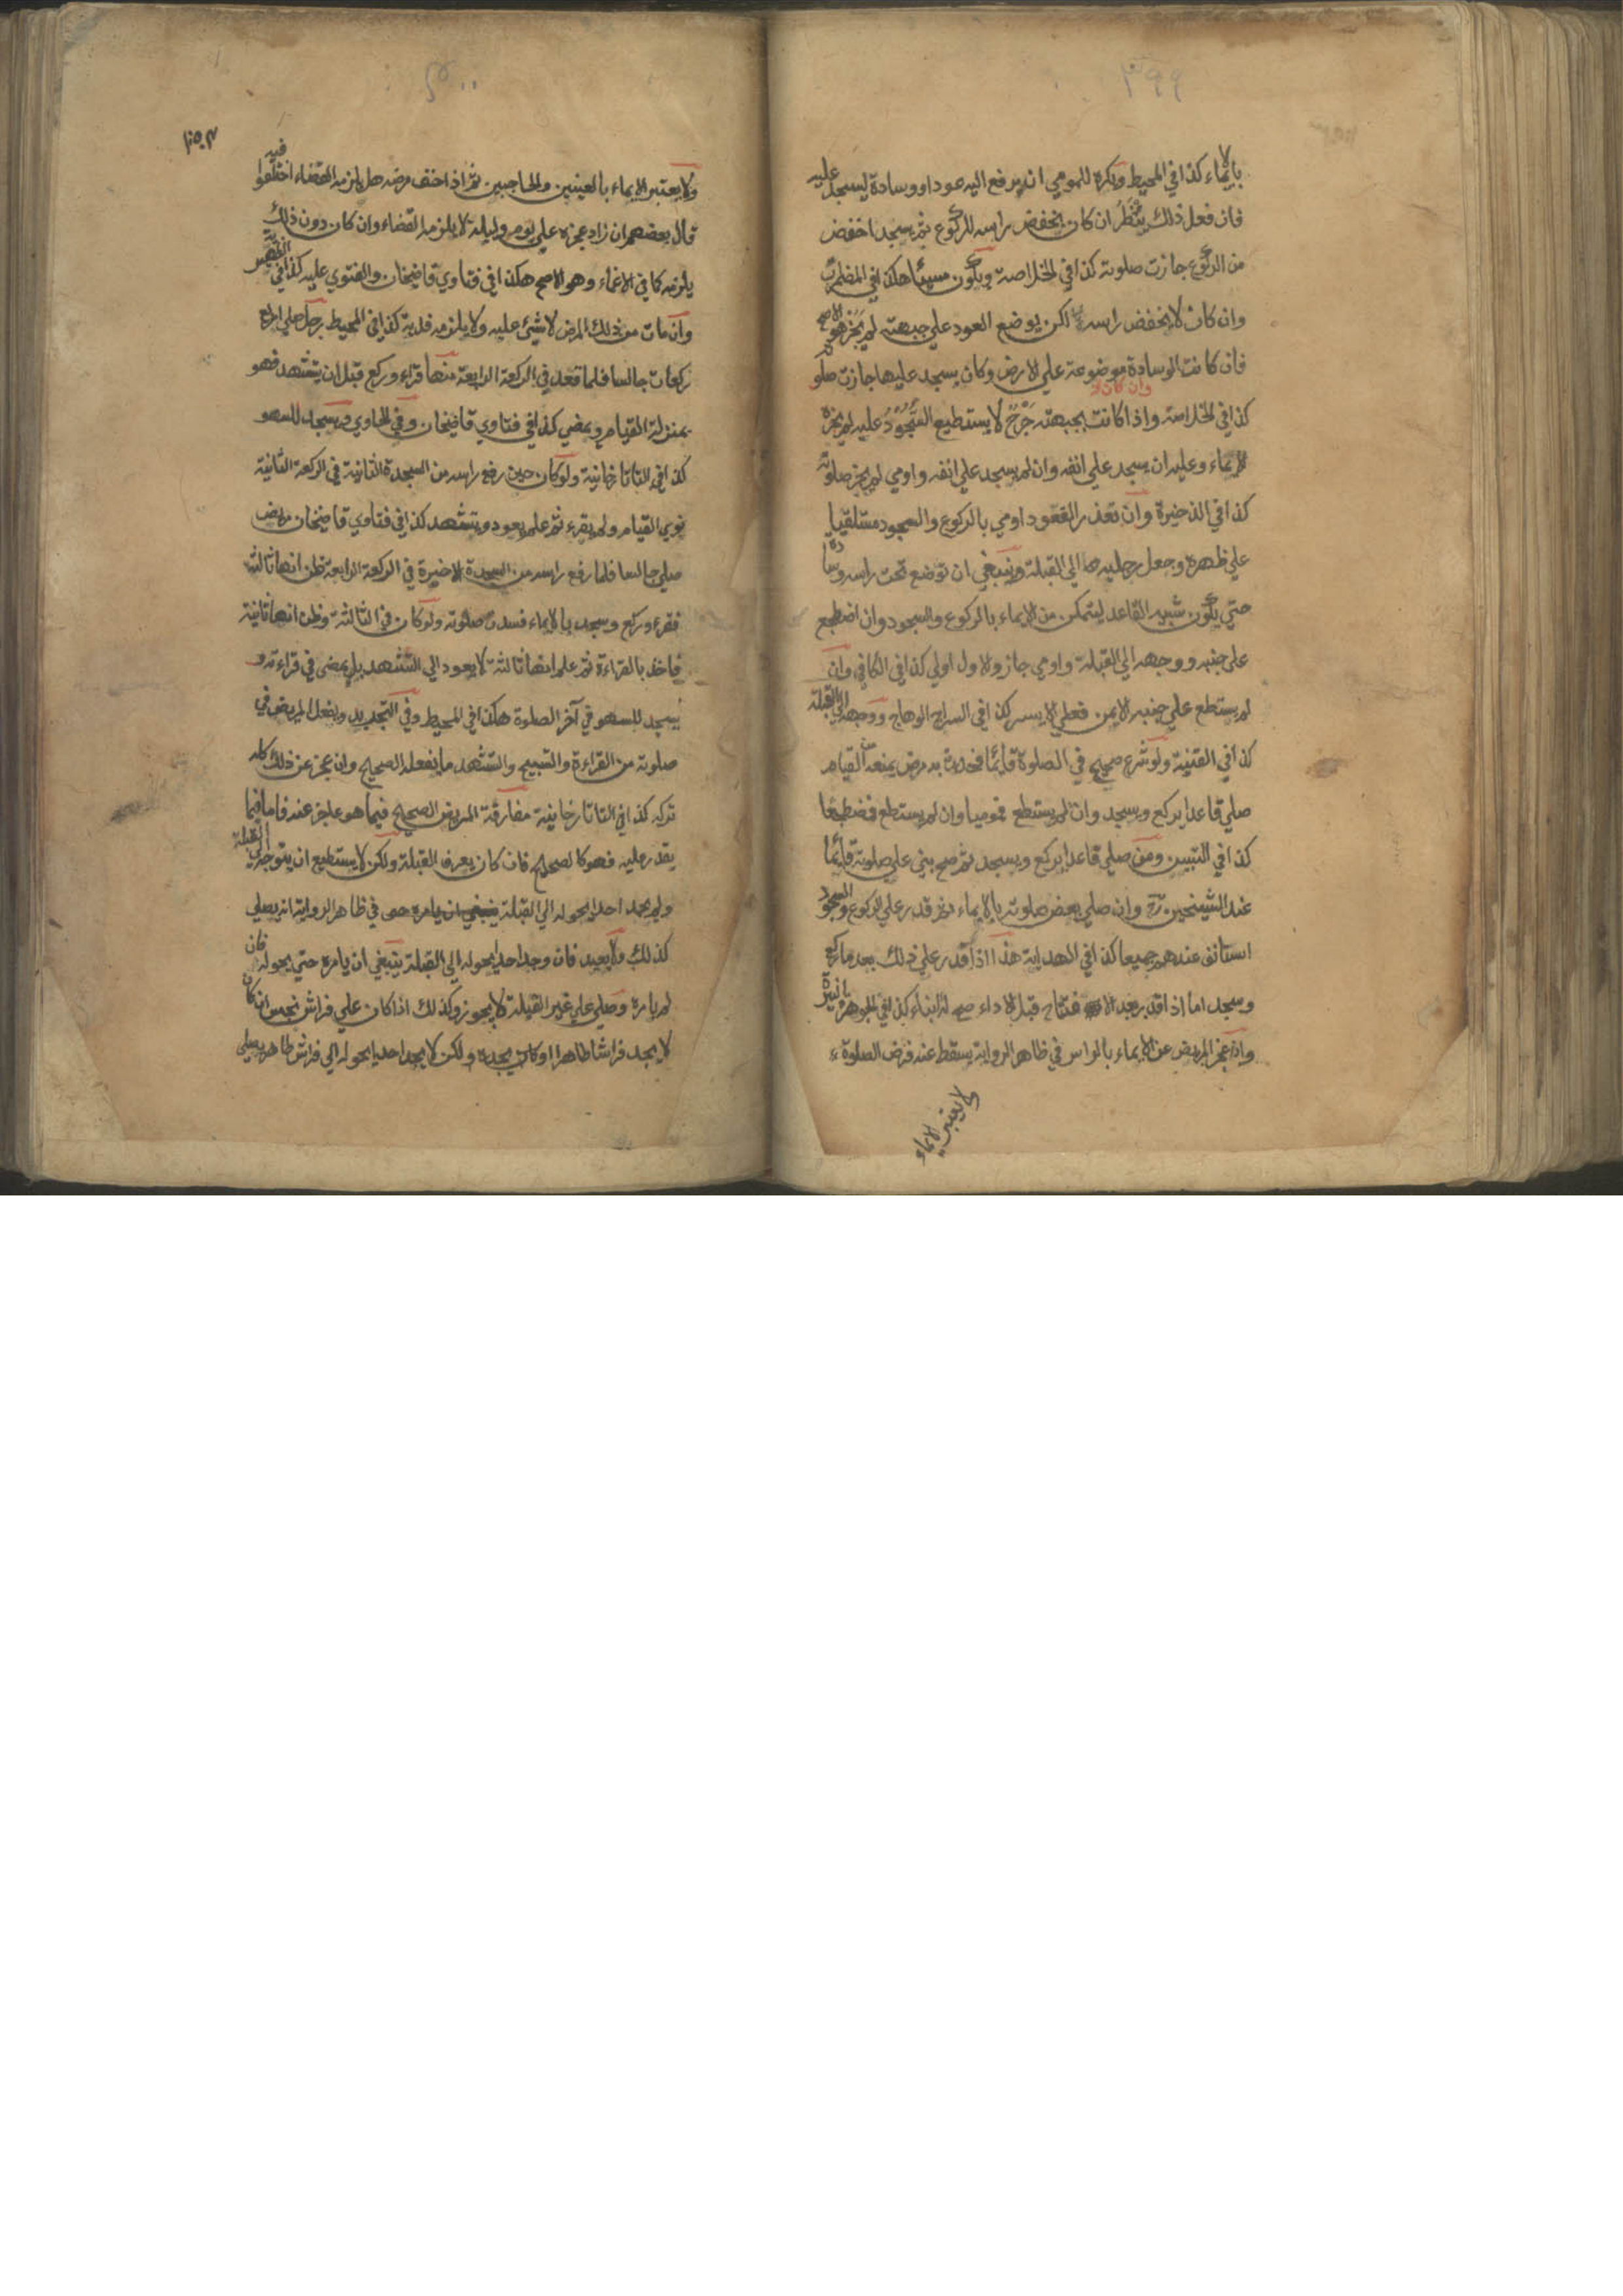 ٣٩٩
بالايماء كذا في المحيط ويكره للمومي ان يرفع اليه عودا او وسادة ليسجد عليه
فان فعل ذلك يُنْظَرُ ان كان يخفض راسه للركوع ثم يسجد اخفض
من الركوع جازت صلوته كذا في الخلاصة ويكون مسيئا هكذا في المضمرات
وان كان لا يخفض راسه لكن يوضع العود علي جبهته لم يَجُزْ هو الاصح
فان كانت الوسادة موضوعة علي الارض وكان يسجد عليها جازت صلوته
وان كان لا
كذا في الخلاصة واذا كانت بجبهته جَرْحٌ لا يستطيع السُّجُوْدُ عليه لم يجزه
الايماء وعليه ان يسجد علي انفه وان لم يسجد علي انفه واومي لم يجز صلوته
كذا في الذخيرة وان تعذر القعود اومي بالركوع والسجود مستلقيا
علي ظهره وجعل رجليه الي القبلة وينبغي ان توضع تحت راسه وسادة
حتي يكون شبيه القاعد ليتمكن من الايماء بالركوع والسجود وان اضطجع
علي جنبه ووجهه الي القبلة واومي جاز والاول اولي كذا في الكافي وان
لم يستطع علي جنبه الايمن فعلي الايسر كذا في السراج الوهاج ووجهه الي القبلة
كذا في القنية ولو شرع صحيح في الصلوة قائما فحدث به مرض يمنعه من القيام
صلي قاعدا يركع ويسجد وان لم يستطع فموميا وان لم يستطع فمضطجعا
كذا في التبيين ومن صلي قاعدا يركع ويسجد ثم صح بني علي صلوته قائما
عند الشيخين رح وان صلي بعض صلوته بالايماء ثم قدر علي الركوع والسجود
استانف عندهم جميعا كذا في الهداية هذا اذا قدر علي ذلك بعد ما ركع
وسجد اما اذا قدر بعد الافتتاح قبل الاداء صح له البناء كذا في الجوهرة النيرة
واذا عجز المريض عن الايماء بالراس في ظاهر الرواية يسقط عنه فرض الصلوة
ولا يعتبر الايماء
٤٠٠
ولا يعتبر الايماء بالعينين والحاجبين ثم اذا خف مرضه هل يلزمه القضاء اختلفوا فيه
قال بعضهم ان زاد عجزه علي يوم وليلة لا يلزمه القضاء وان كان دون ذلك
يلزمه كما في الاغماء وهو الاصح هكذا في فتاوي قاضيخان والفتوي عليه كذا في الظهيرية
وان مات من ذلك المرض لا شيئ عليه ولا يلزمه فدية كذا في المحيط رجل صلي اربع
ركعات جالسا فلما قعد في الركعة الرابعة منها قراء وركع قبل ان يتشهد فهو
بمنزلة القيام ويمضي كذا في فتاوي قاضيخان وفي الحاوي ويسجد للسهو
كذا في التاتارخانية ولو كان حين رفع راسه من السجدة الثانية في الركعة الثانية
نوي القيام ولم يقرء ثم علم يعود ويتشهد كذا في فتاوي قاضيخان مريض
صلي جالسا فلما رفع راسه من السجدة الاخيرة في الركعة الرابعة ظن انها ثالثة
فقرء وركع وسجد بالايماء فسدت صلوته ولو كان في الثالثة وظن انها ثانية
فاخذ بالقراءة ثم علم انها ثالثة لا يعود الي التشهد بل يمضي في قراءته و
يسجد للسهو في آخر الصلوة هكذا في المحيط وفي التجديد ويفعل المريض في
صلوته من القراءة والتسبيح والتشهد ما يفعله الصحيح وان عجز عن ذلك كله
تركه كذا في التاتارخانية مفارقة المريض الصحيح فيما هو عاجز عنه فاما فيما
يقدر عليه فهو كالصحيح فان كان يعرف القبلة ولكن لا يستطيع ان يتوجه الي القبلة
ولم يجد احدا يحوله الي القبلة في ظاهر الرواية انه يصلي
كذلك ولا يعيد فان وجد احدا يحوله الي القبلة ينبغي ان يامره حتي يحوله فان
لم يامره وصلي علي غير القبلة لا يجوز وكذلك اذا كان علي فراش نجس ان كان
لا يجد فراشا طاهرا او كان يجده ولكن لا يجد احدا يحوله الي فراش طاهر يصلي